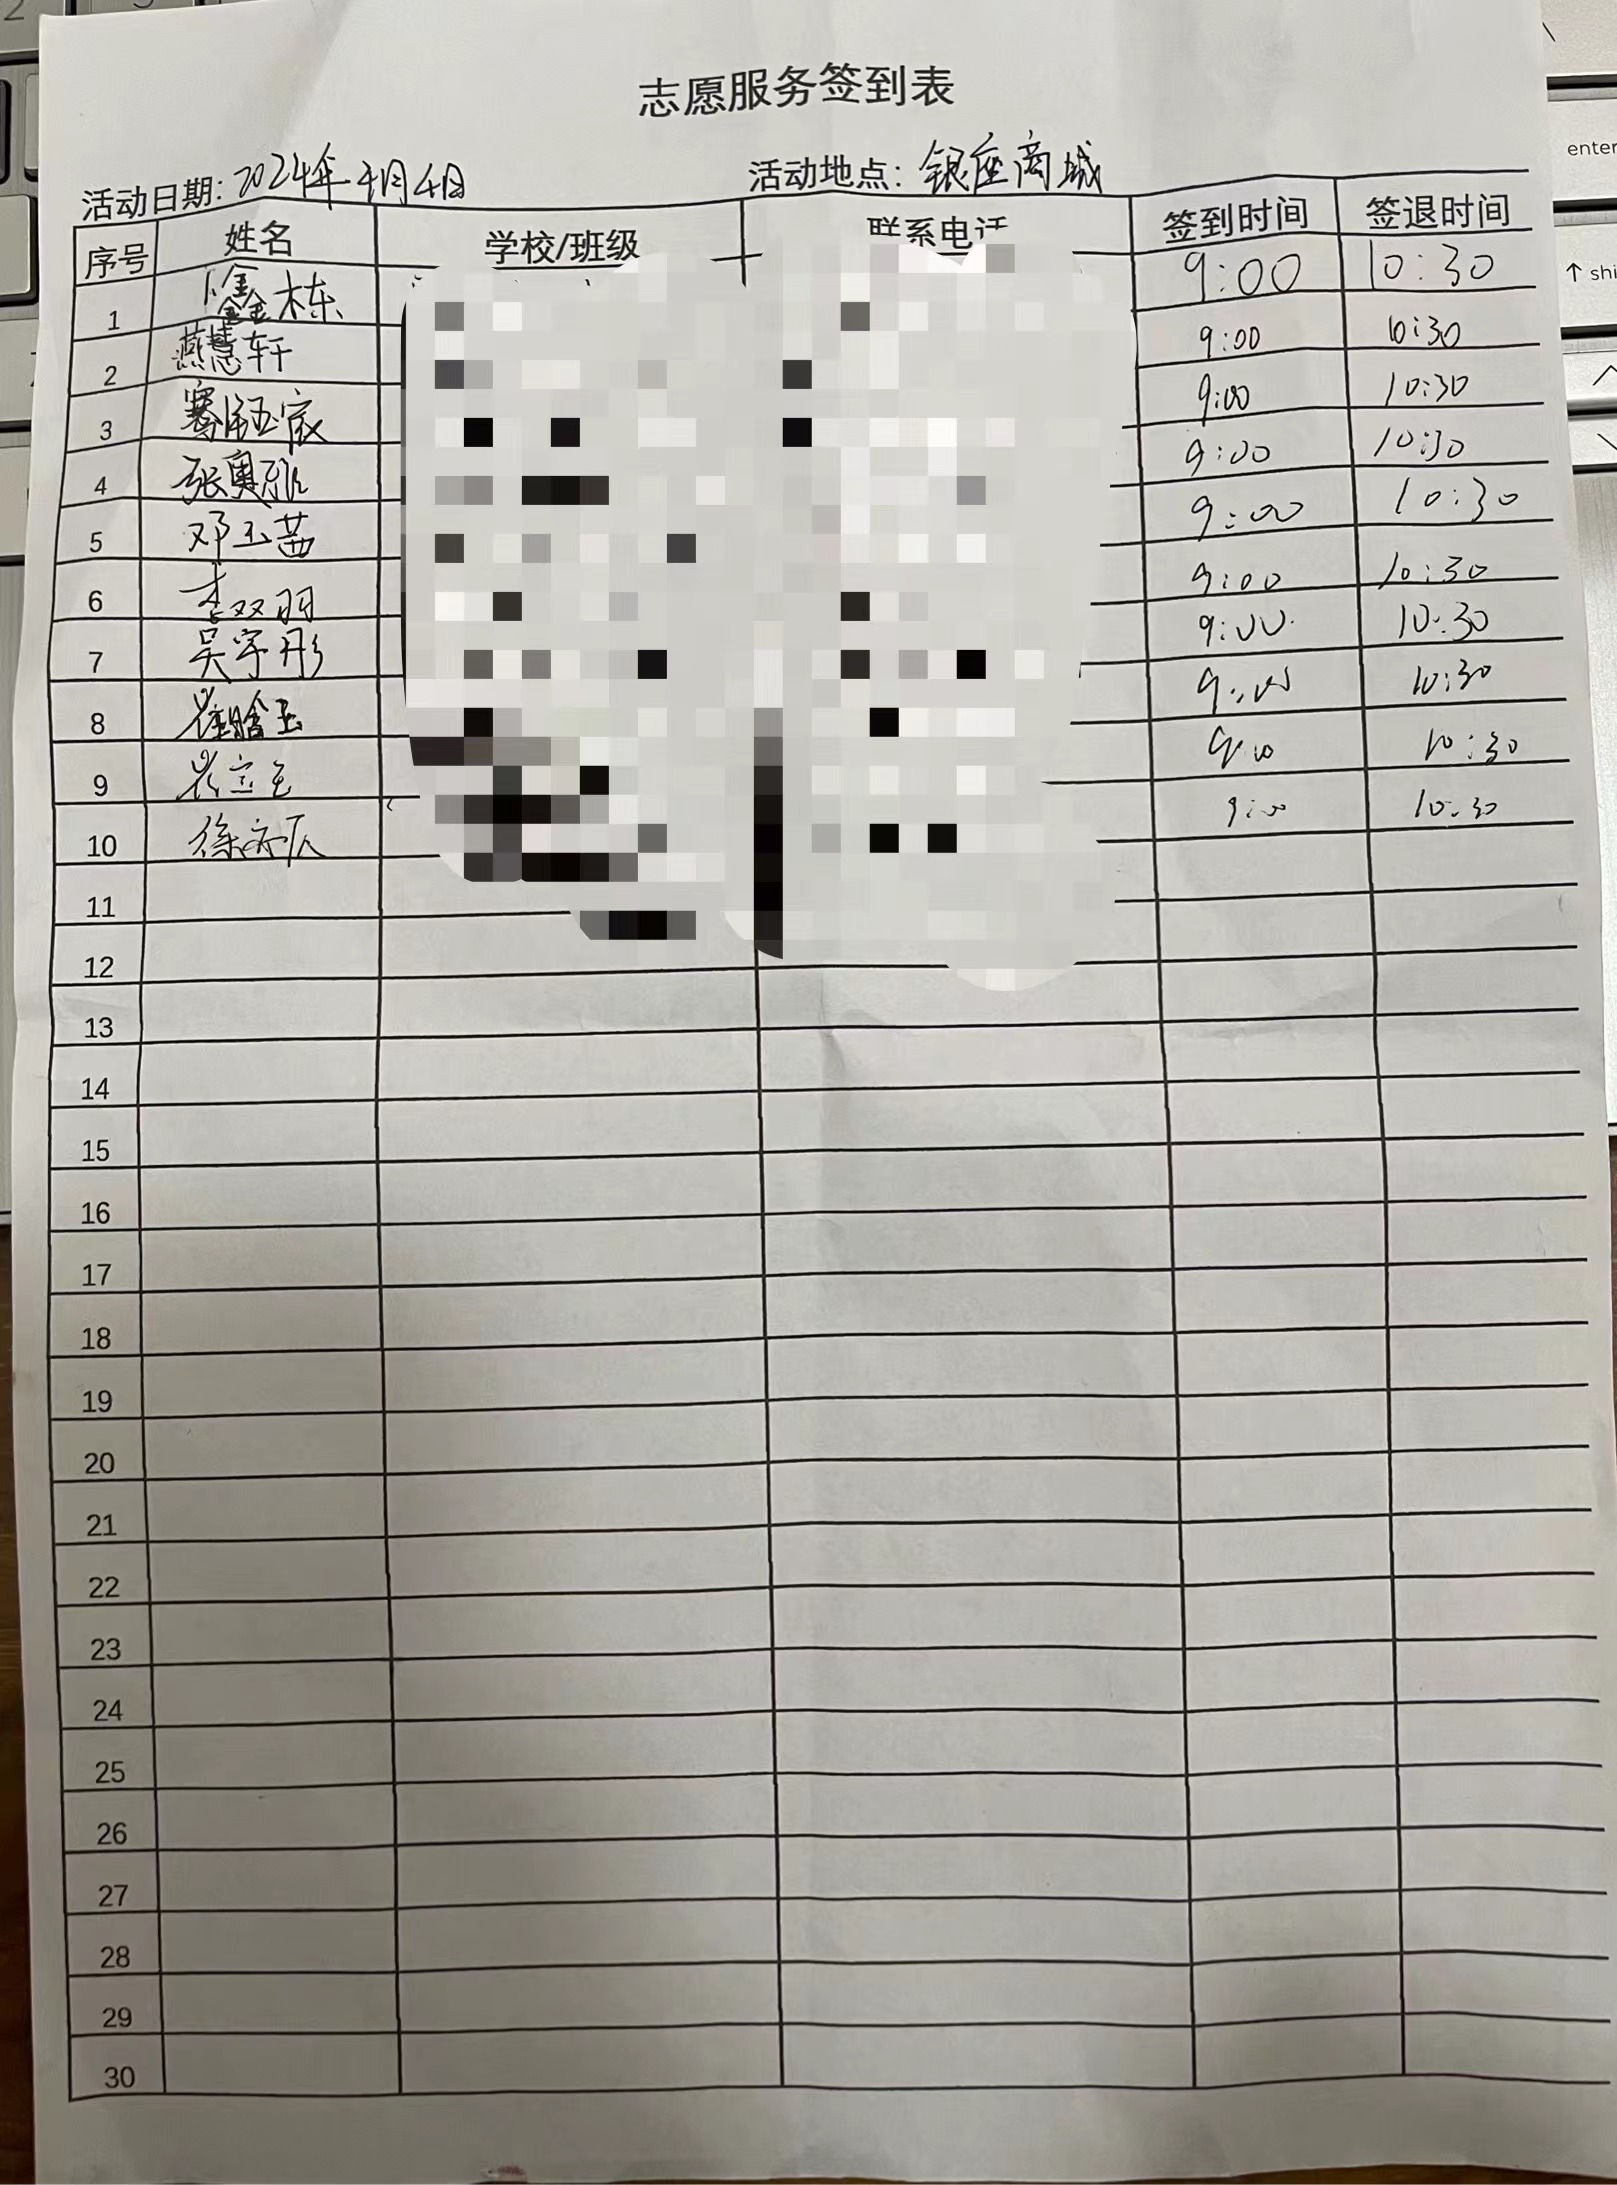 志愿服务签到表
活动日期: 2024年2月4日 活动地点: 银座商城
序号 姓名 学校/班级 联系电话 签到时间 签退时间
1 卞鑫栋 9:00 10:30
2 燕慧轩 9:00 10:30
3 9:00 10:30
4 张奥雅 9:00 10:30
5 邓玉茜 9:00 10:30
6 李双羽 9:00 10:30
7 吴宇彤 9:00 10:30
8 崔晗玉 9:00 10:30
9 崔立 9:00 10:30
10 徐 9:00 10:30
11
12
13
14
15
16
17
18
19
20
21
22
23
24
25
26
27
28
29
30
enter